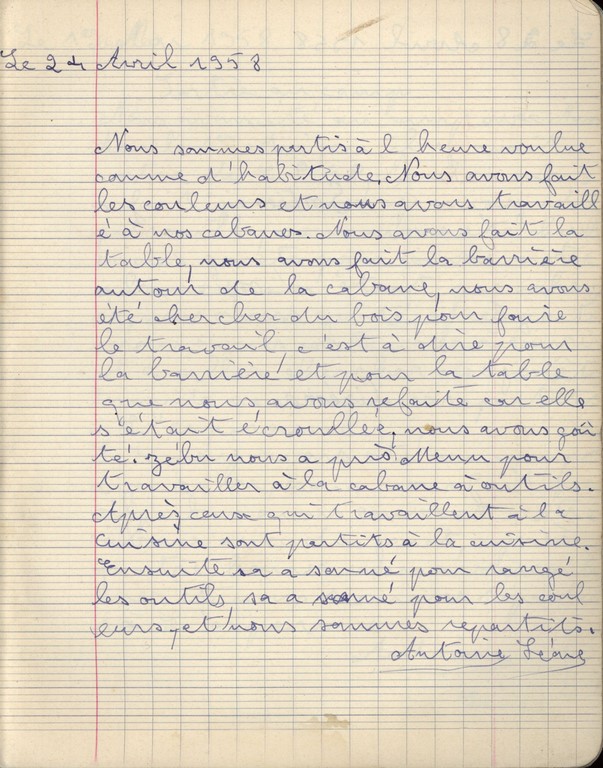 Le 24 Avril 1958
Nous sommes partis à l heure voulue
comme d'habitude. Nous avons fait
les couleurs et nous avons travaill
é à nos cabanes. Nous avons fait la
table, nous avons fait la barrière
autour de la cabane, nous avons
été chercher du bois pour faire
le travail, c'est à dire pour
la barrière et pour la table
que nous avons refaite car elle
s'était écroullée, nous avons goû
té. zébu nous a pris Menu pour
travailler à la cabane à outils.
Après ceux qui travaillent à la
cuisine sont partits à la cuisine.
Ensuite sa a sonné pour rangé
les outils, sa a sonné pour les coul
eurs, et nous sommes repartits.
Antoine